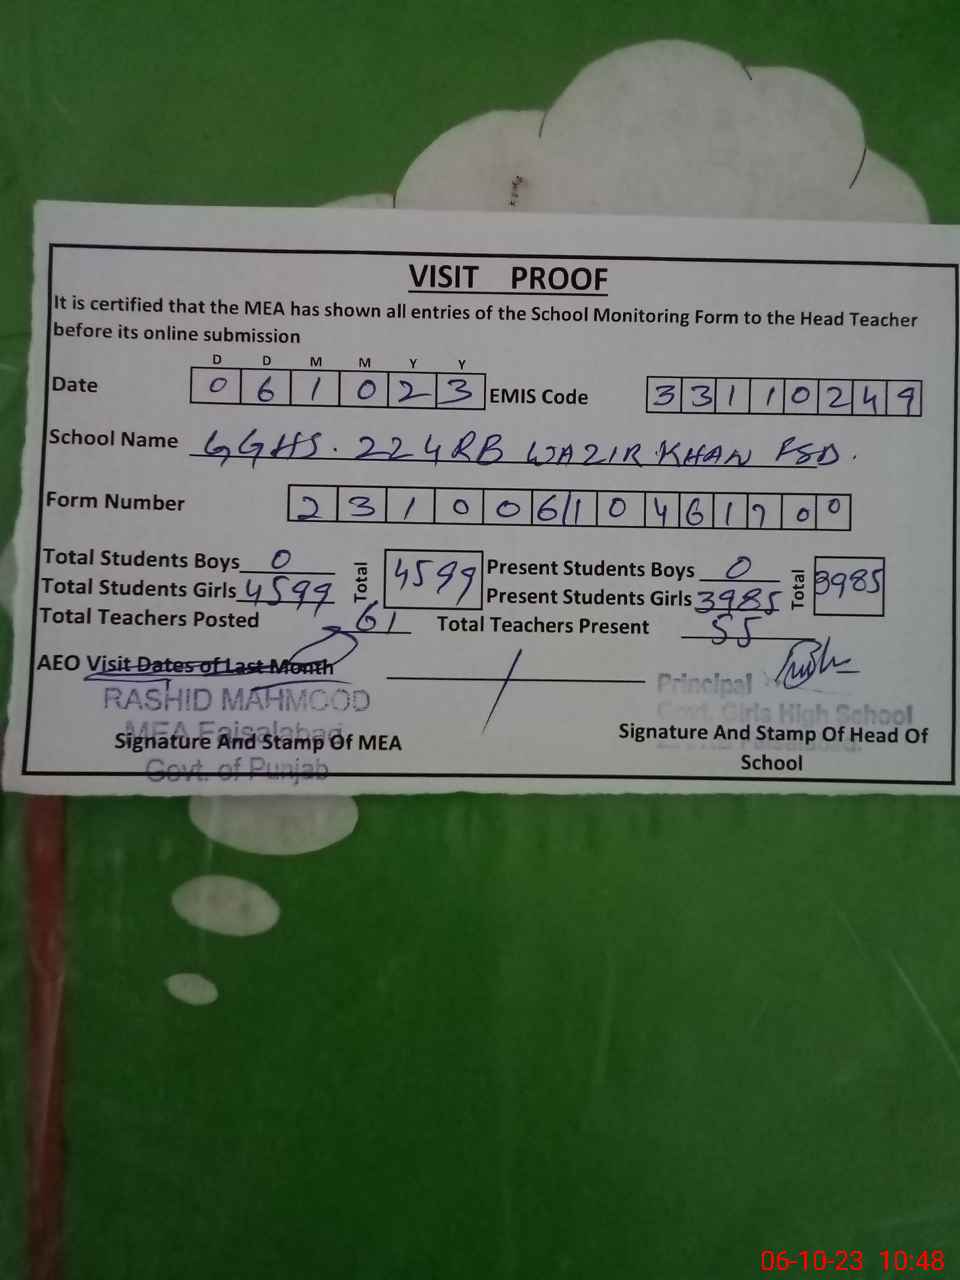 VISIT PROOF
It is certified that the MEA has shown all entries of the School Monitoring Form to the Head Teacher
before its online submission
D D M M Y Y
Date 0 6 1 0 2 3 EMIS Code 3 3 1 1 0 2 4 9
School Name GGHS. 224RB WAZIR KHAN FSD.
Form Number 2 3 1 0 0 6 1 0 4 6 1 7 0 0
Total Students Boys 0 Total 4599 Present Students Boys 0 Total 3985
Total Students Girls 4599 Present Students Girls 3985
Total Teachers Posted 61 Total Teachers Present 55
AEO Visit Dates of Last Month /
RASHID MAHMOOD
MEA Faisalabad
Govt. of Punjab
Signature And Stamp Of MEA
Principal
Govt. Girls High School
Signature And Stamp Of Head Of
School
06-10-23 10:48